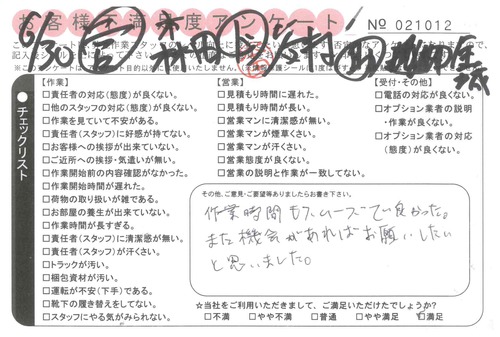 お客様不満足度アンケート
№ 021012
6/30
チェックリスト
【作業】
□責任者の対応(態度)が良くない。
□他のスタッフの対応(態度)が良くない。
□作業を見ていて不安がある。
□責任者(スタッフ)に好感が持てない。
□お客様への挨拶が出来ていない。
□ご近所への挨拶・気遣いが無い。
□作業開始前の内容確認がなかった。
□作業開始時間が遅れた。
□荷物の取り扱いが雑である。
□お部屋の養生が出来ていない。
□作業時間が長すぎる。
□責任者(スタッフ)に清潔感が無い。
□責任者(スタッフ)が汗くさい。
□トラックが汚い。
□梱包資材が汚い。
□運転が不安(下手)である。
□靴下の履き替えをしてない。
□スタッフにやる気がみられない。
【営業】
□見積もり時間に遅れた。
□見積もり時間が長い。
□営業マンに清潔感が無い。
□営業マンが煙草くさい。
□営業マンが汗くさい。
□営業態度が良くない。
□営業の説明と作業が一致してない。
【受付・その他】
□電話の対応が良くない。
□オプション業者の説明
・作業が良くない。
□オプション業者の対応
(態度)が良くない。
その他、ご意見・ご要望等ありましたらお書き下さい。
作業時間もスムーズで良かった。
また機会があればお願いしたい
と思いました。
☆当社をご利用いただきまして、ご満足いただけたでしょうか?
□不満 □やや不満 □普通 □やや満足 □満足